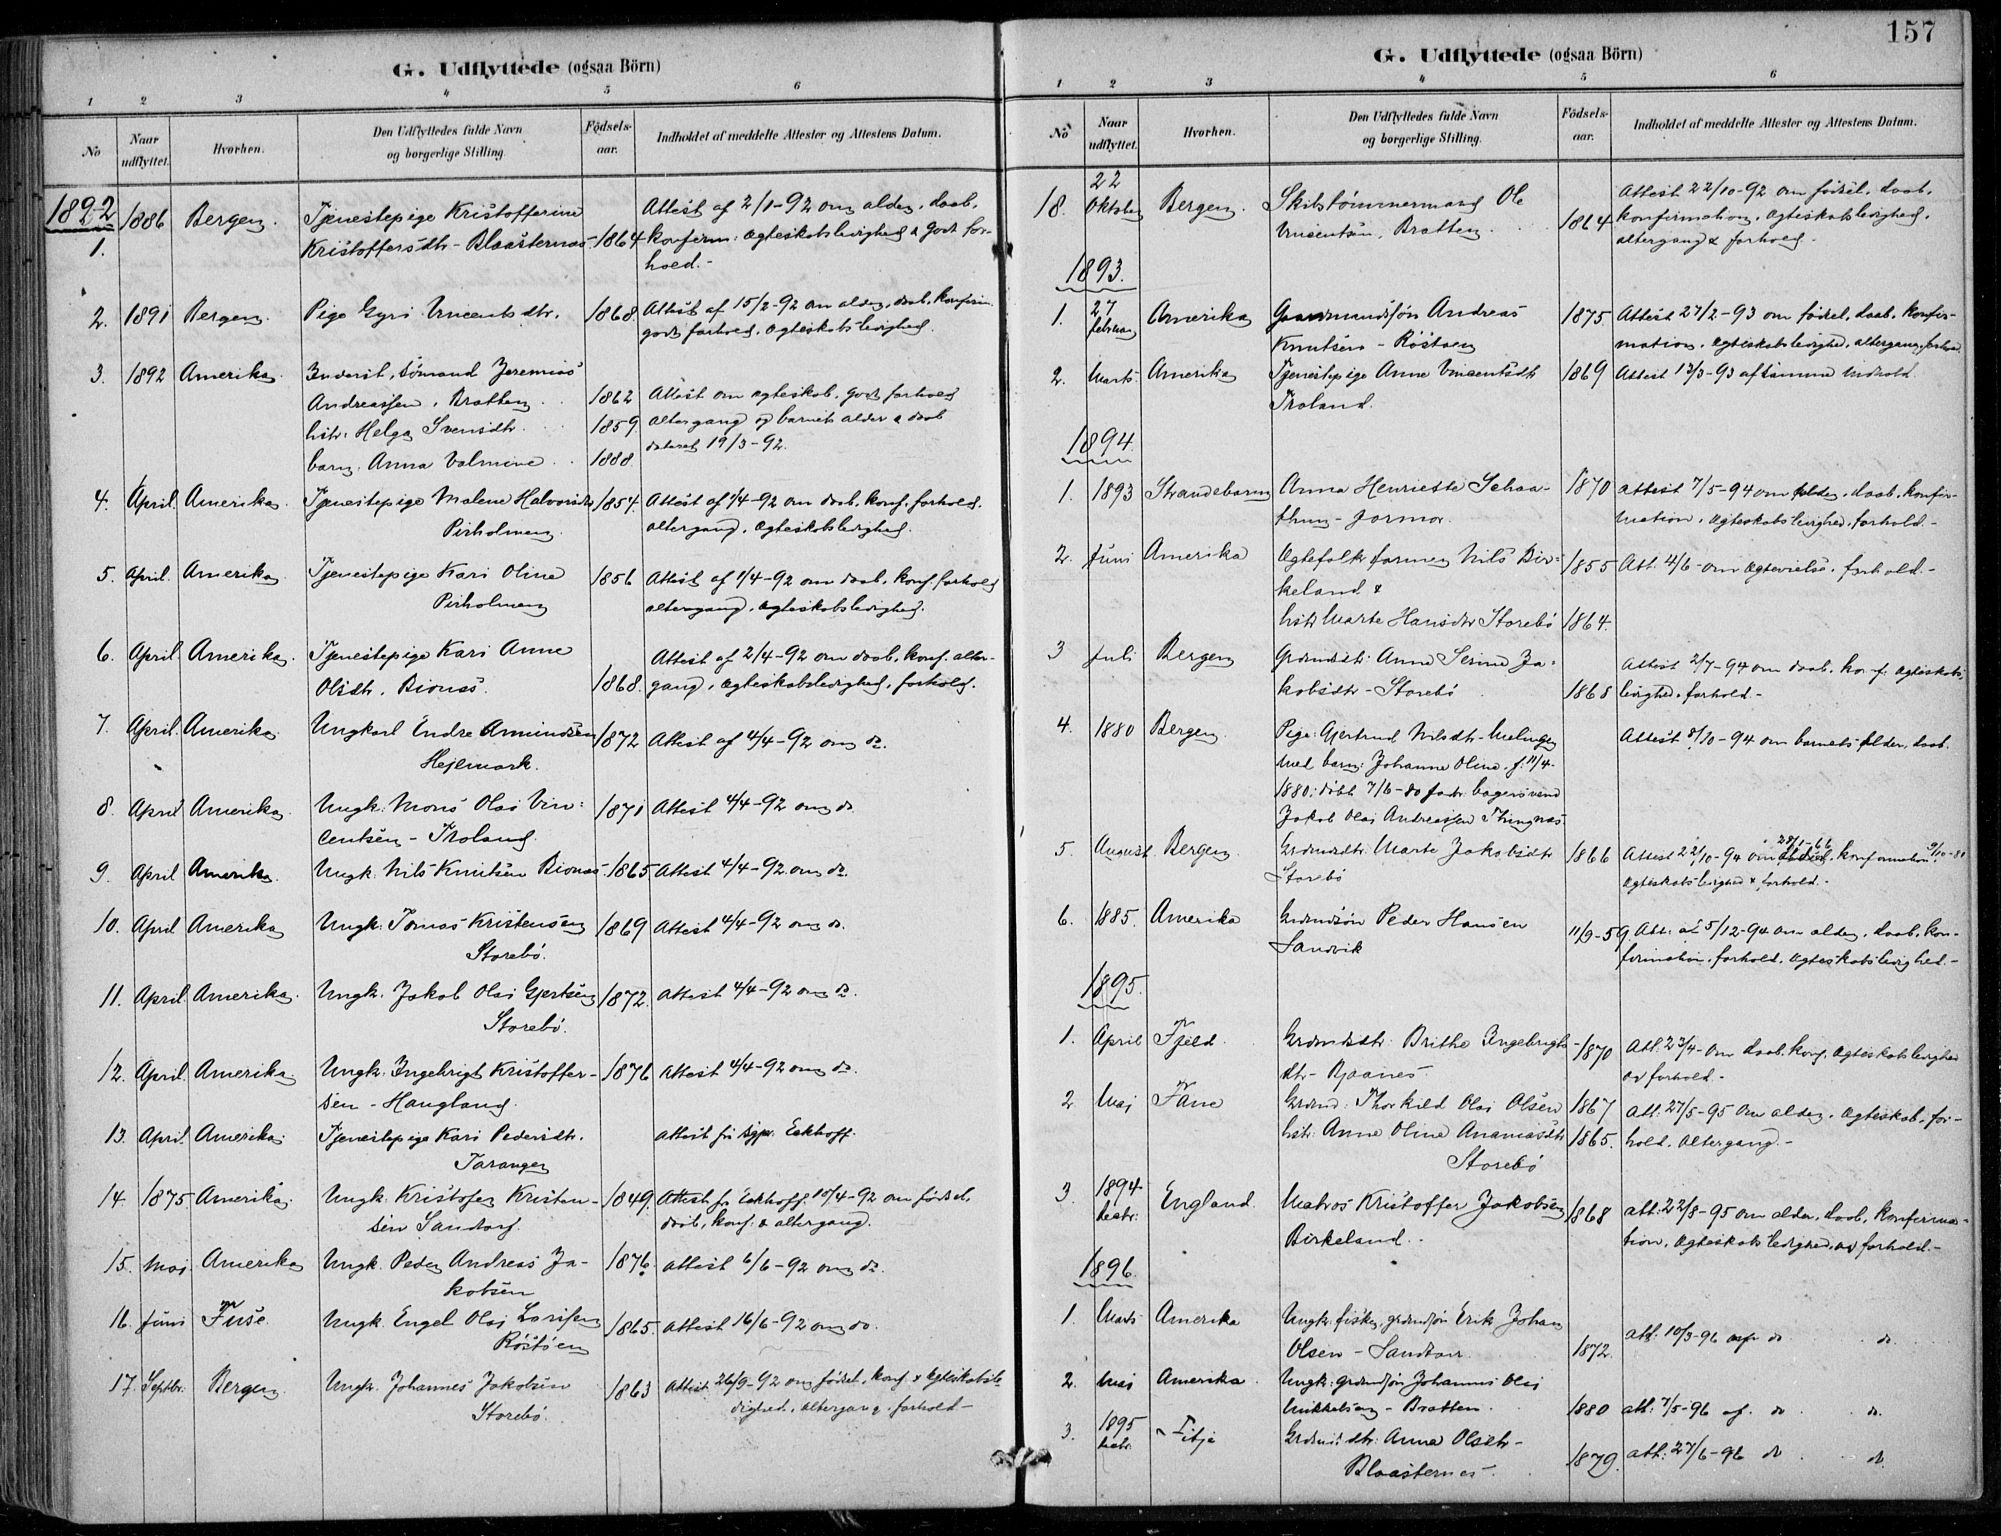 G. Udflyttede (ogsaa Börn)
1 2 3 4 5 6
No Naar udflyttet. Hvorhen. Den Udflyttedes fulde Navn og borgerlige Stilling. Födsels-aar. Indholdet af meddelte Attester og Attestens Datum.
1892
1. 1886 Bergen. Tjenestepige Kristofferine
Kristoffersdtr - Blaasternæs 1864
Attest af 2/1-92 om alder, daab,
konferm: Ægteskabsledighed & godt for-
hold.-
2. 1891 Bergen. Pige Gyri Vincentsdtr. 1868
Attest af 15/2-92 om alder, daab, konferm.
godt forhold, Ægteskabsledighed.
3. 1892 Amerika. Inderst, Sömand Jeremias
Andreassen, Bratten 1862
hstr: Helga Svensdtr 1859
barn: Anna Valmine 1888.
Attest om Ægteskab, godt forhold
altergang og barnets alder & daab
dateret 19/3-92.
4. April. Amerika. Tjenestepige Malene Halvorsdtr 1854.
Pirholmen
Attest af 1/4-92 om daab, konf. forhold.
altergang, Ægteskabsledighed.
5. April. Amerika. Tjenestepige Kari Oline 1856
Pirholmen
Attest af 1/4-92 om daab, konf. forhold
altergang, Ægteskabsledighed.
6. April. Amerika. Tjenestepige Kari Anne
Olsdtr. Bionæs. 1868.
Attest af 2/4-92 om daab, konf. alter-
gang, Ægteskabsledighed, forhold.
7. April. Amerika. Ungkarl Endre Amundsen 1872
Hejemark.
Attest af 4/4-92 om do.
8. April Amerika. Ungk: Mons Olai Vin-
centsen - Troland. 1871
Attest 4/4-92 om do
9. April Amerika. Ungk. Nils Knutsen Bionæs. 1865 Attest 4/4-92 om do.
10. April Amerika Ungk: Tomas Kristensen 1869
Storebö.
Attest 4/4-92 om do.
11. April Amerika. Ungk. Jakob Olai Gjertsen 1872.
Storebö.
Attest 4/4-92 om do.
12. April. Amerika. Ungk. Ingebrigt Kristoffer-
sen - Haugland. 1876
Attest 4/4-92 om do.
13. April. Amerika. Tjenestepige Kari Pedersdtr.
Taranger
Attest fra sgpr. Eckhoff.
14. 1875. Amerika. Ungk. Kristofer Kristen-
sen Sandtorf. 1849.
Attest fr Eckhoff 10/4-92 om födsel,
daab, konf. & altergang.
15. Maj Amerika Ungk. Peder Andreas Ja-
kobsen 1876
Attest 6/6-92 om do.
16. Juni Fuse. Ungk. Engel Olai Larsen 1865.
Röstöen
Attest 16/6-92 om do.
17. Septbr. Bergen. Ungk. Johannes Jakobsen 1863
Storebö.
Attest 26/9-92 om födsel, konf. & Ægteskabsle-
dighed. altergang. forhold-
157
G. Udflyttede (ogsaa Börn)
1 2 3 4 5 6
No Naar udflyttet. Hvorhen. Den Udflyttedes fulde Navn og borgerlige Stilling. Födsels-aar. Indholdet af meddelte Attester og Attestens Datum.
18. 22 Oktober Bergen. Skibstömmermand Ole
Vincentsen, Bratten. 1864
Attest 22/10-92 om födsel, daab,
konfirmation, Ægteskabsledighed,
altergang & forhold.
1893.
1. 27 februar Amerika Gaardmandssön Andreas
Knutsen - Röstöen 1875.
Attest 27/2-93 om födsel, daab, konfir-
mation. Ægteskabsledighed, altergang, forhold.
2. Marts. Amerika Tjenestepige Anne Vincentsdtr
Troland. 1869
Attest 13/3-93 af samme Indhold.
1894.
1. 1893 Strandebarm Anna Henriette Schaa-
thun - jormor. 1870
Attest 7/5-94 om alder, daab, konfir-
mation. Ægteskabsledighed, forhold.-
2. Juni Amerika Ægtefolk farmer Nils Bir-
keland & 1855
hstr Marte Hansdtr Storebö 1864.
Att. 4/6- om Ægtevielse, forhold.-
3 Juli Bergen Grdmdsdtr: Anna Serine Ja-
kobsdtr - Storebö 1868
Attest 2/7-94 om daab, konf. Ægteskabs-
ledighed, forhold.-
4. 1880 Bergen. Pige: Gjertrud Nilsdtr - Melingen
med barn: Johanne Oline, f. 11/4-
1880: döbt 7/6-80 fadr: bagersvend
Jakob Olai Andreassen Thingnæs.
Attest 8/10-94 om barnets alder, daab.
5. August Bergen Grdmdsdtr. Marte Jakobsdtr
Storebö 1866
Attest 22/10-94 om födsel, konfirmation
Ægteskabsledighed & forhold.-
6. 1885. Amerika Grdmdssön Peder Hansen
Sandvik 11/9-59
Att: af 5/12-94 om alder, daab, kon-
firmation, forhold, Ægteskabsledighed.-
1895.
1. April Fjeld. Grdmdsdtr: Brithe Ingebrigts-
dtr - Bjaanes 1870
Att. 23/4- om daab, konf. Ægteskabsledighed
og forhold.-
2 Maj Fane Grdmd: Thorkild Olai Olsen 1867
hstr: Anne Oline Ananiasdtr 1865.
Storebö
Att: 27/5-95 om alder, Ægteskab, for-
hold. Altergang.-
3. 1894 England. Matros Kristoffer Jakobsen
Birkeland. 1868
att: 22/8-95 om alder, daab, konfirma-
tion, Ægteskabsledighed, og forhold.-
1896.
1. Marts Amerika Ungk: fisker, grdmdssön Erik Johan
Olsen - Sandtorv. 1872.
att: 10/3-96 do do
2. Maj Amerika. Ungk: grdmdssön Johannes Olai
Mikkelsen - Bratten. 1880
att: 7/5-96 af. do do.
3. 1895 Fitje Grdmdsdtr: Anna Olsdtr-
Blaasternes. 1879.
att: 27/6-96 do do.